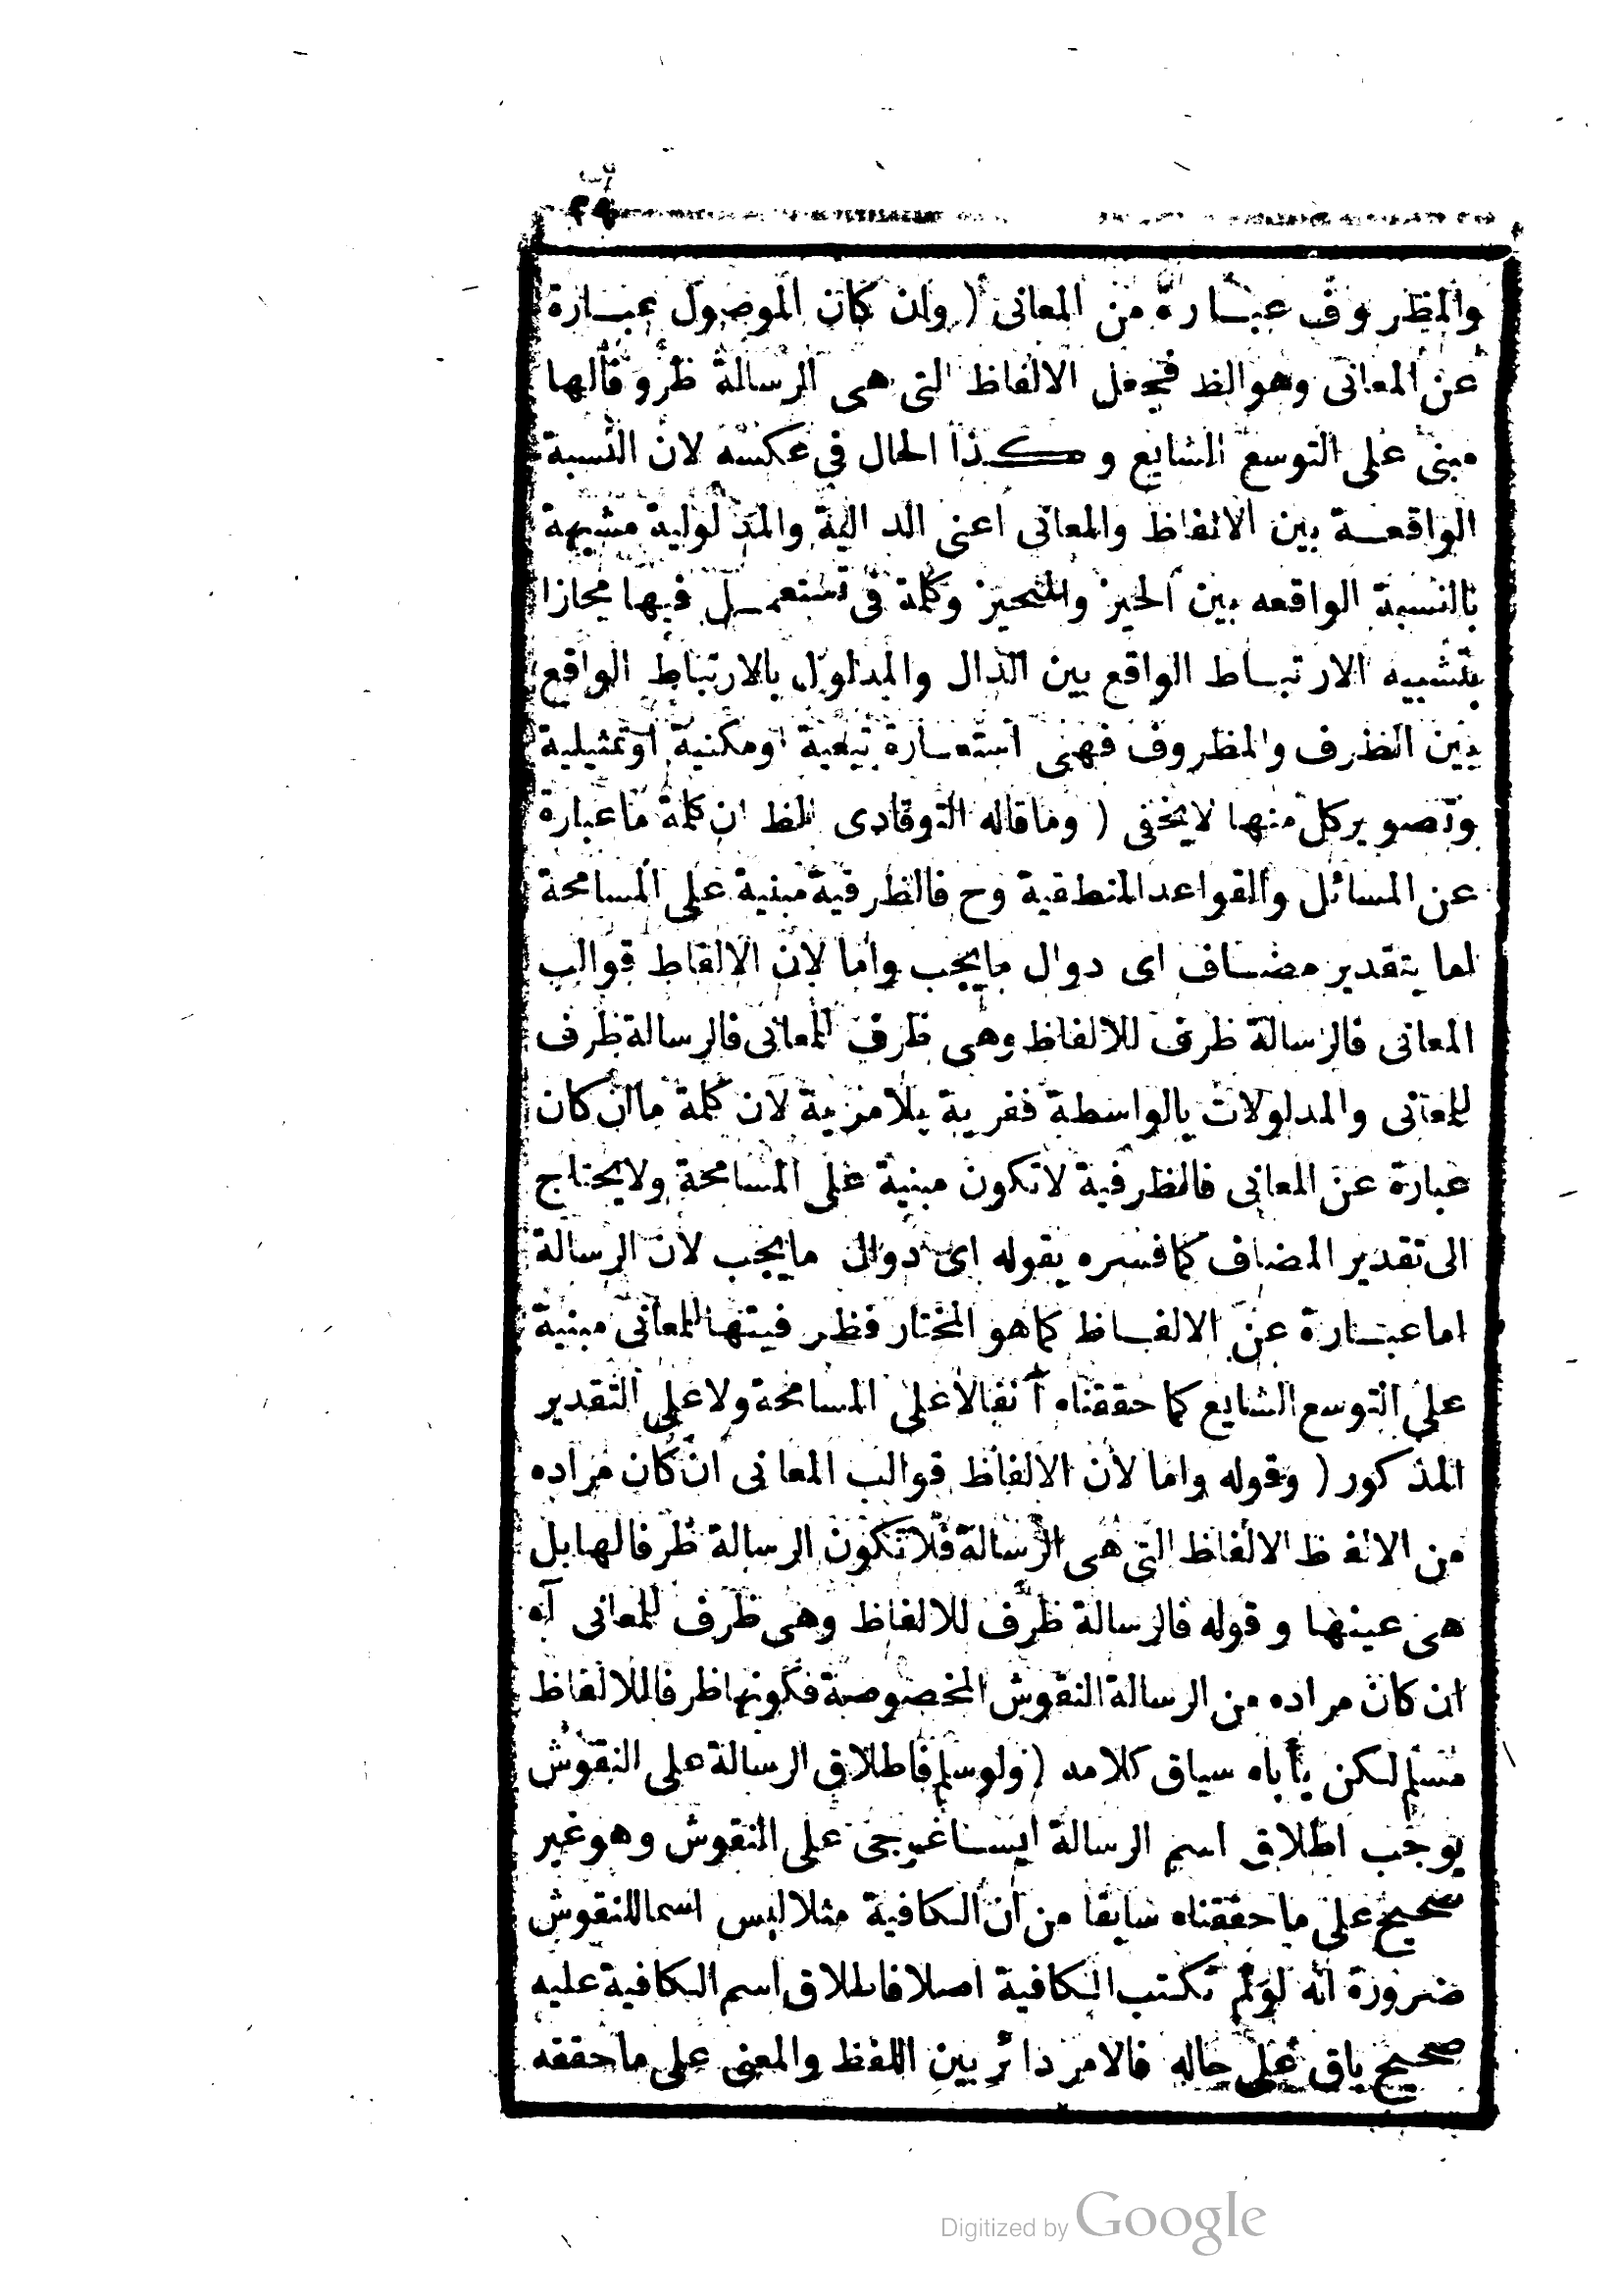 والمظروف عبارة من المعانى ( وان كان الموصول عبارة
عن المعانى وهو الظ فجعل الالفاظ التى هى الرسالة ظروفا لها
مبنى على التوسع الشايع وكذا الحال فى عكسه لان النسبة
الواقعة بين الالفاظ والمعانى اعنى الدالية والمدلولية مشبهة
بالنسبة الواقعه بين الحيز والمتحيز وكلمة فى تستعمل فيها مجازا
بتشبيه الارتباط الواقع بين الدال والمدلول بالارتباط الواقع
بين الظرف والمظروف فهى استعارة تبعية او مكنية او تمثيلية
وتصوير كل منها لايخفى ( وما قاله التوقادى الظ ان كلمة ما عبارة
عن المسائل والقواعد المنطقية وح فالظرفية مبنية على المسامحة
اما بتقدير مضاف اى دوال مايجب واما لان الالفاظ قوالب
المعانى فالرسالة ظرف للالفاظ وهى ظرف للمعانى فالرسالة ظرف
للمعانى والمدلولات بالواسطة ففرية بلامزية لان كلمة ما ان كان
عبارة عن المعانى فالظرفية لاتكون مبنية على المسامحة ولايحتاج
الى تقدير المضاف كما فسره بقوله اى دوال مايجب لان الرسالة
اما عبارة عن الالفاظ كما هو المختار فظرفيتها للمعانى مبنية
على التوسع الشايع كما حققناه آنفا لا على المسامحة ولا على التقدير
المذكور ( وقوله واما لان الالفاظ قوالب المعانى ان كان مراده
من الالفاظ الالفاظ التى هى الرسالة فلا تكون الرسالة ظرفا لها بل
هى عينها وقوله فالرسالة ظرف للالفاظ وهى ظرف للمعانى آه
ان كان مراده من الرسالة النقوش المخصوصة فكونها ظرفا للالفاظ
مسلم لكن يأباه سياق كلامه ( ولو سلم فاطلاق الرسالة على النقوش
يوجب اطلاق اسم الرسالة ايساغوجى على النقوش وهو غير
صحيح على ما حققناه سابقا من ان الكافية مثلا ليس اسما للنقوش
ضرورة انه لو لم تكتب الكافية اصلا فاطلاق اسم الكافية عليه
صحيح باق على حاله فالامر دائر بين اللفظ والمعنى على ما حققه
Digitized by Google